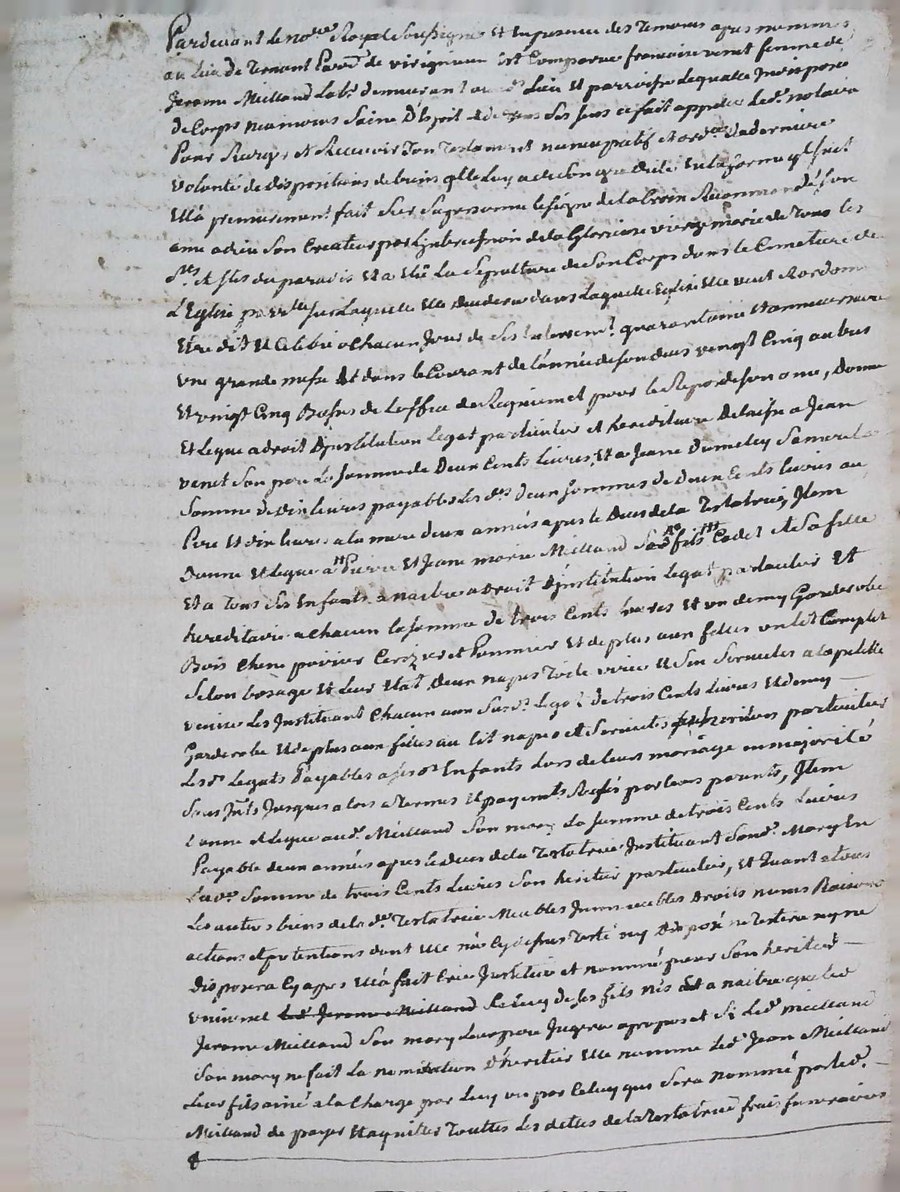 Pardevant le no.re Royal Soussigné Et En presence des Temoins apres nommés
au Lieu de Ternant Parr.e de virignieu Est Comparue francoise venet femme de
Jerome Meilland Lab.r demeurant au d. Lieu et parroisse Laquelle Indisposé
de Corps neamoins Saine D'Esprit et de tous Ses Sens a fait appeller Led. notaire
Pour Recevoir Son Testament nuncupatif Et ord.re Sa derniere
volonté de dispositions de biens q'lle Luy a de Son gré Dicté En la forme q'l Suit
Ella premierement fait Sur Sa personne le signe de la Croix Recommandé Son
ame a dieu Son Createur par L'intercession de la Glorieuse vierge marie de Tous les
S.ts et S.tes du paradis Et a Elû La Sepulture de Son Corps dans le Cimetiere de
L'Eglise parr.lle Sur Laquelle Elle decedera dans Laquelle Eglise Elle veut Et ordonne
Etre dit Et Celebré a Chacun Jours de Ses Enterrem.t quarantaine Et anniversaire
une grande messe Et dans le Courant de L'année de Son deces vingt Cinq messes
Et vingt Cinq Basses de L'office de Requiem Et pour le Repos de Son ame, Donne
Et Legue a droit D'institution Legat particulier et hereditaire Delaisse a Jean
venet Son pere La Somme de Deux Cents Livres, Et a Jeane Dumeley Sa mere La
Somme de Dix Livres payables Les d.s deux Sommes de Deux Cents Livres au
Pere Et dix Livres a la mere deux années apres le Deces de la Testatrice, Item
Donne Et Legue a Pierre Et Jeane marie Meilland Son fils Cadet Et Sa fille
Et a Tous Ses Enfants a naitre a droit D'institution Legat particulier Et
hereditaire a Chacun la Somme de trois Cents Livres Et un demy Garderobe
Bois Chene poirier Cerizier et Pommier Et de plus aux filles un Lit Complet
Selon L'usage Et Leur Etat, Deux napes Toile Et Six Serviettes a la petite
venise Les Instituant Chacun aux Susd. Legat de trois Cents Livres Et demy
Garderobe Et de plus aux filles au lit napes et Serviettes heritiers particuliers
Les d. Legats Payables a Ses d. Enfants Lors de Leurs mariage ou majorité
Sans Jnts Jusques alors a Termes Et payments Reglés par Leurs parents, Item
Donne et Legue aud. Meilland Son mary La Somme de trois Cents Livres
Payable deux années apres le deces de la Testatrice Instituant Sond. Mary En
Lad. Somme de trois Cents Livres Son heritier particulier, Et Quant a tous
Les autres biens de la d. Testatrice Meubles Immeubles Droits noms Raisons
actions Et pretentions dont Elle n'a Cy dessus Testé ny Disposé ne Testera ny ne
Disposera Cy apres Ella fait Crée Institué et nommé pour Son heritier
universel Led. Jerome Meilland Celuy de Ses fils nés Et a naitre que Led
Jerome Meilland Son mary Leur pere Jugera apropos et Si Led. Meilland
Son mary ne fait La nomination D'heritier Elle nomme Led. Jean Meilland
Leur fils ainé a la Charge par Luy ou par Celuy qui Sera nommé par led.
Meilland de payer Et aquitter Touttes Les dettes de la Testatrice frais funeraires